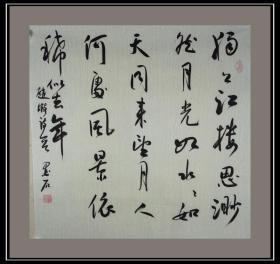 独上江楼思渺
然月光如水水如
天同来望月人
何处风景依
稀似去年
赵嘏诗　墨石